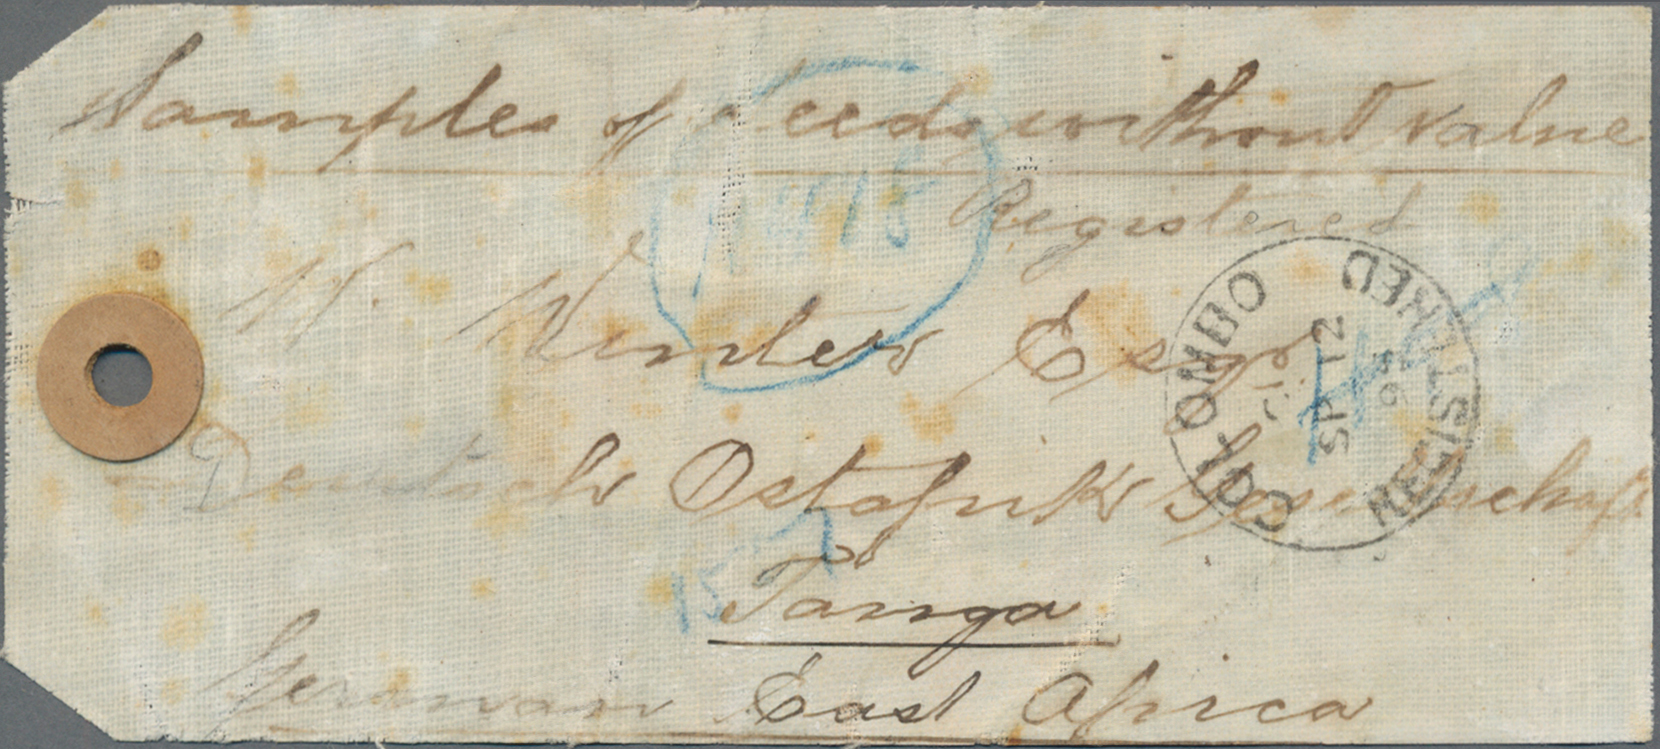 Samples of Seeds without value
Registered
1418
W. Winter Esqr
Deutsch Ostafrik Gesellschaft
15
Tanga
German East Africa
COLOMBO
REGISTERED
SP 12
95